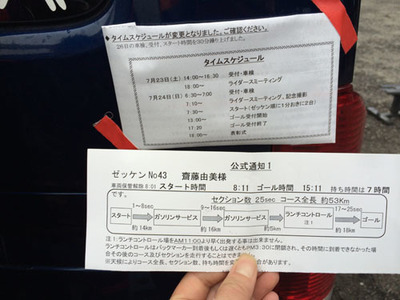 タイムスケジュールが変更となりました。ご確認ください。
26日の車検、受付、スタート時間を30分繰り上げました。
タイムスケジュール
7月23日(土) 14:00~16:30 受付・車検
18:00~ ライダースミーティング
7月24日(日) 6:30~7:00 受付・車検
7:10~ ライダースミーティング、記念撮影
7:30~ スタート(ゼッケン順に1分おきに2台)
13:00~ ゴール受付開始
17:20 ゴール受付終了
18:00~ 表彰式
公式通知1
ゼッケンNo43 齋藤由美様
車両保管解除 8:01 スタート時間 8:11 ゴール時間 15:11 持ち時間は7時間
セクション数 25sec コース全長 約53Km
1~8sec 9~16sec 17~25sec
スタート ガソリンサービス ガソリンサービス ランチコントロール 注1 ゴール
約14km 約16km 約5km 約18km
注1:ランチコントロール場をAM11:00より早く出発する事は出来ません。
ランチコントロールはバックマーカー到着後もしくは遅くともPM3:30に閉鎖され、その時間に到着できなかった場
合その後のコース及びセクションを走行することはでき
※天候によりコース全長、セクション数、持ち時間を変 合があります。